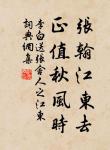 張翰江東去
正值秋風時
李白送張舍人之江東
詞典網集